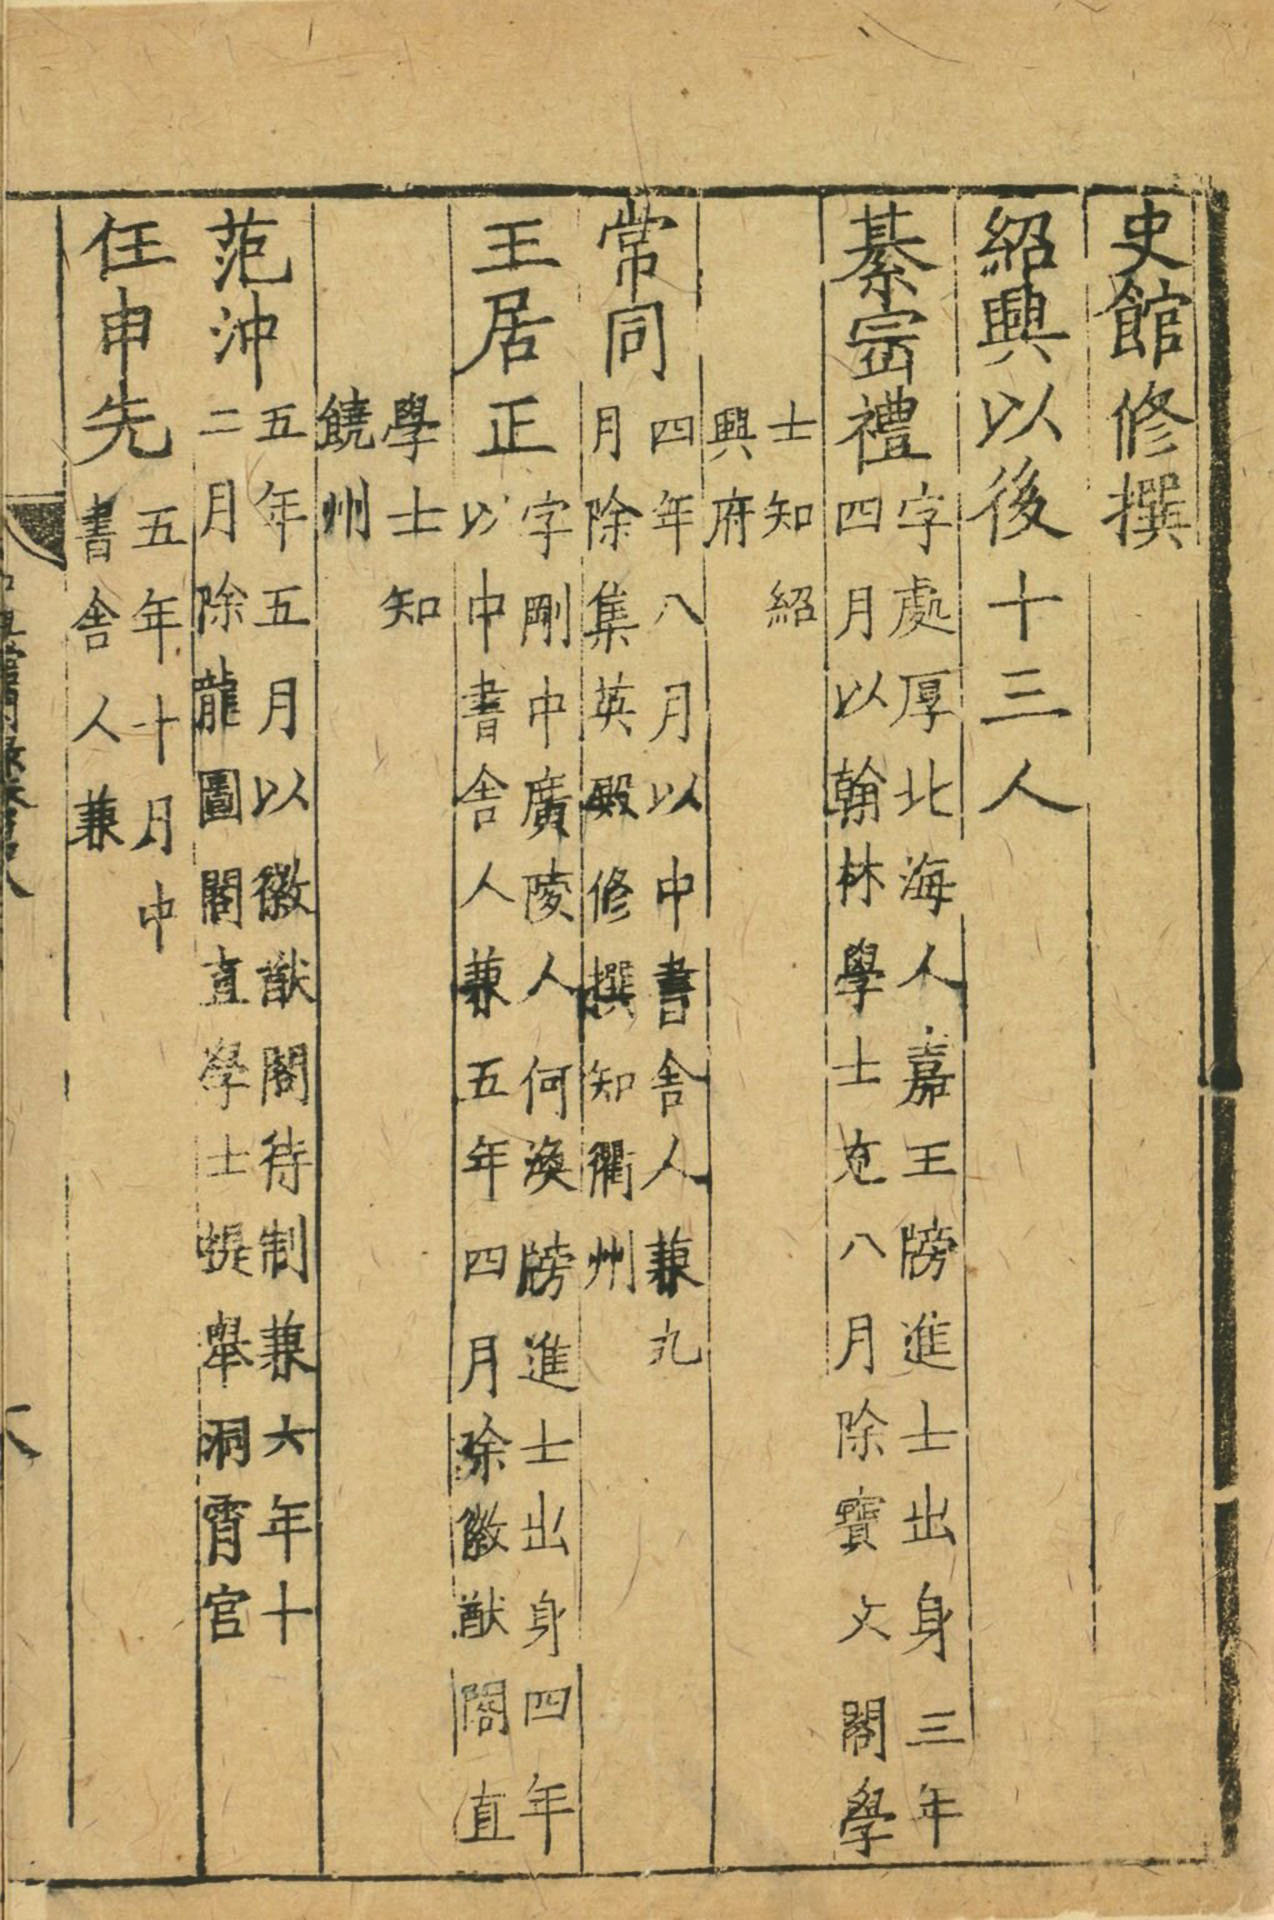 史館修撰
紹興以後十三人
綦崈禮字處厚北海人嘉王牓進士出身三年
四月以翰林學士充八月除寶文閣學
士知紹
興府
常同四年八月以中書舍人兼九
月除集英殿修撰知衢州
王居正字剛中廣陵人何渙牓進士出身四年
以中書舍人兼五年四月除徽猷閣直
學士知
饒州
范沖五年五月以徽猷閣待制兼六年十
二月除龍圖閣直學士提舉洞霄宫
任申先五年十月中
書舍人兼